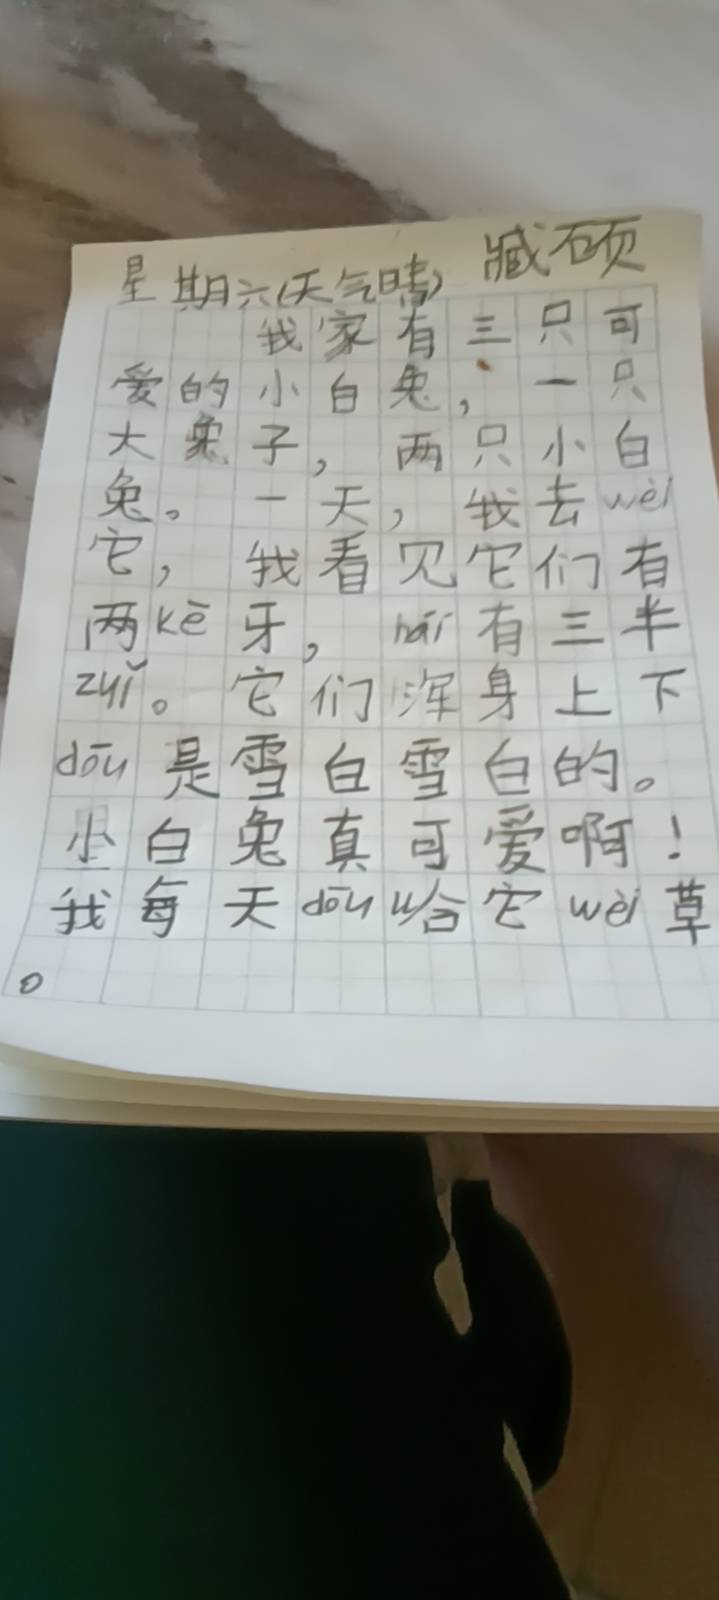 星期六(天气晴) 臧硕
我家有三只可
爱的小白兔，一只
大兔子，两只小白
兔。一天，我去wèi
它，我看见它们有
两kē牙，hái有三半
zuǐ。它们浑身上下
dōu是雪白雪白的。
小白兔真可爱啊！
我每天dōu给它wèi草
。